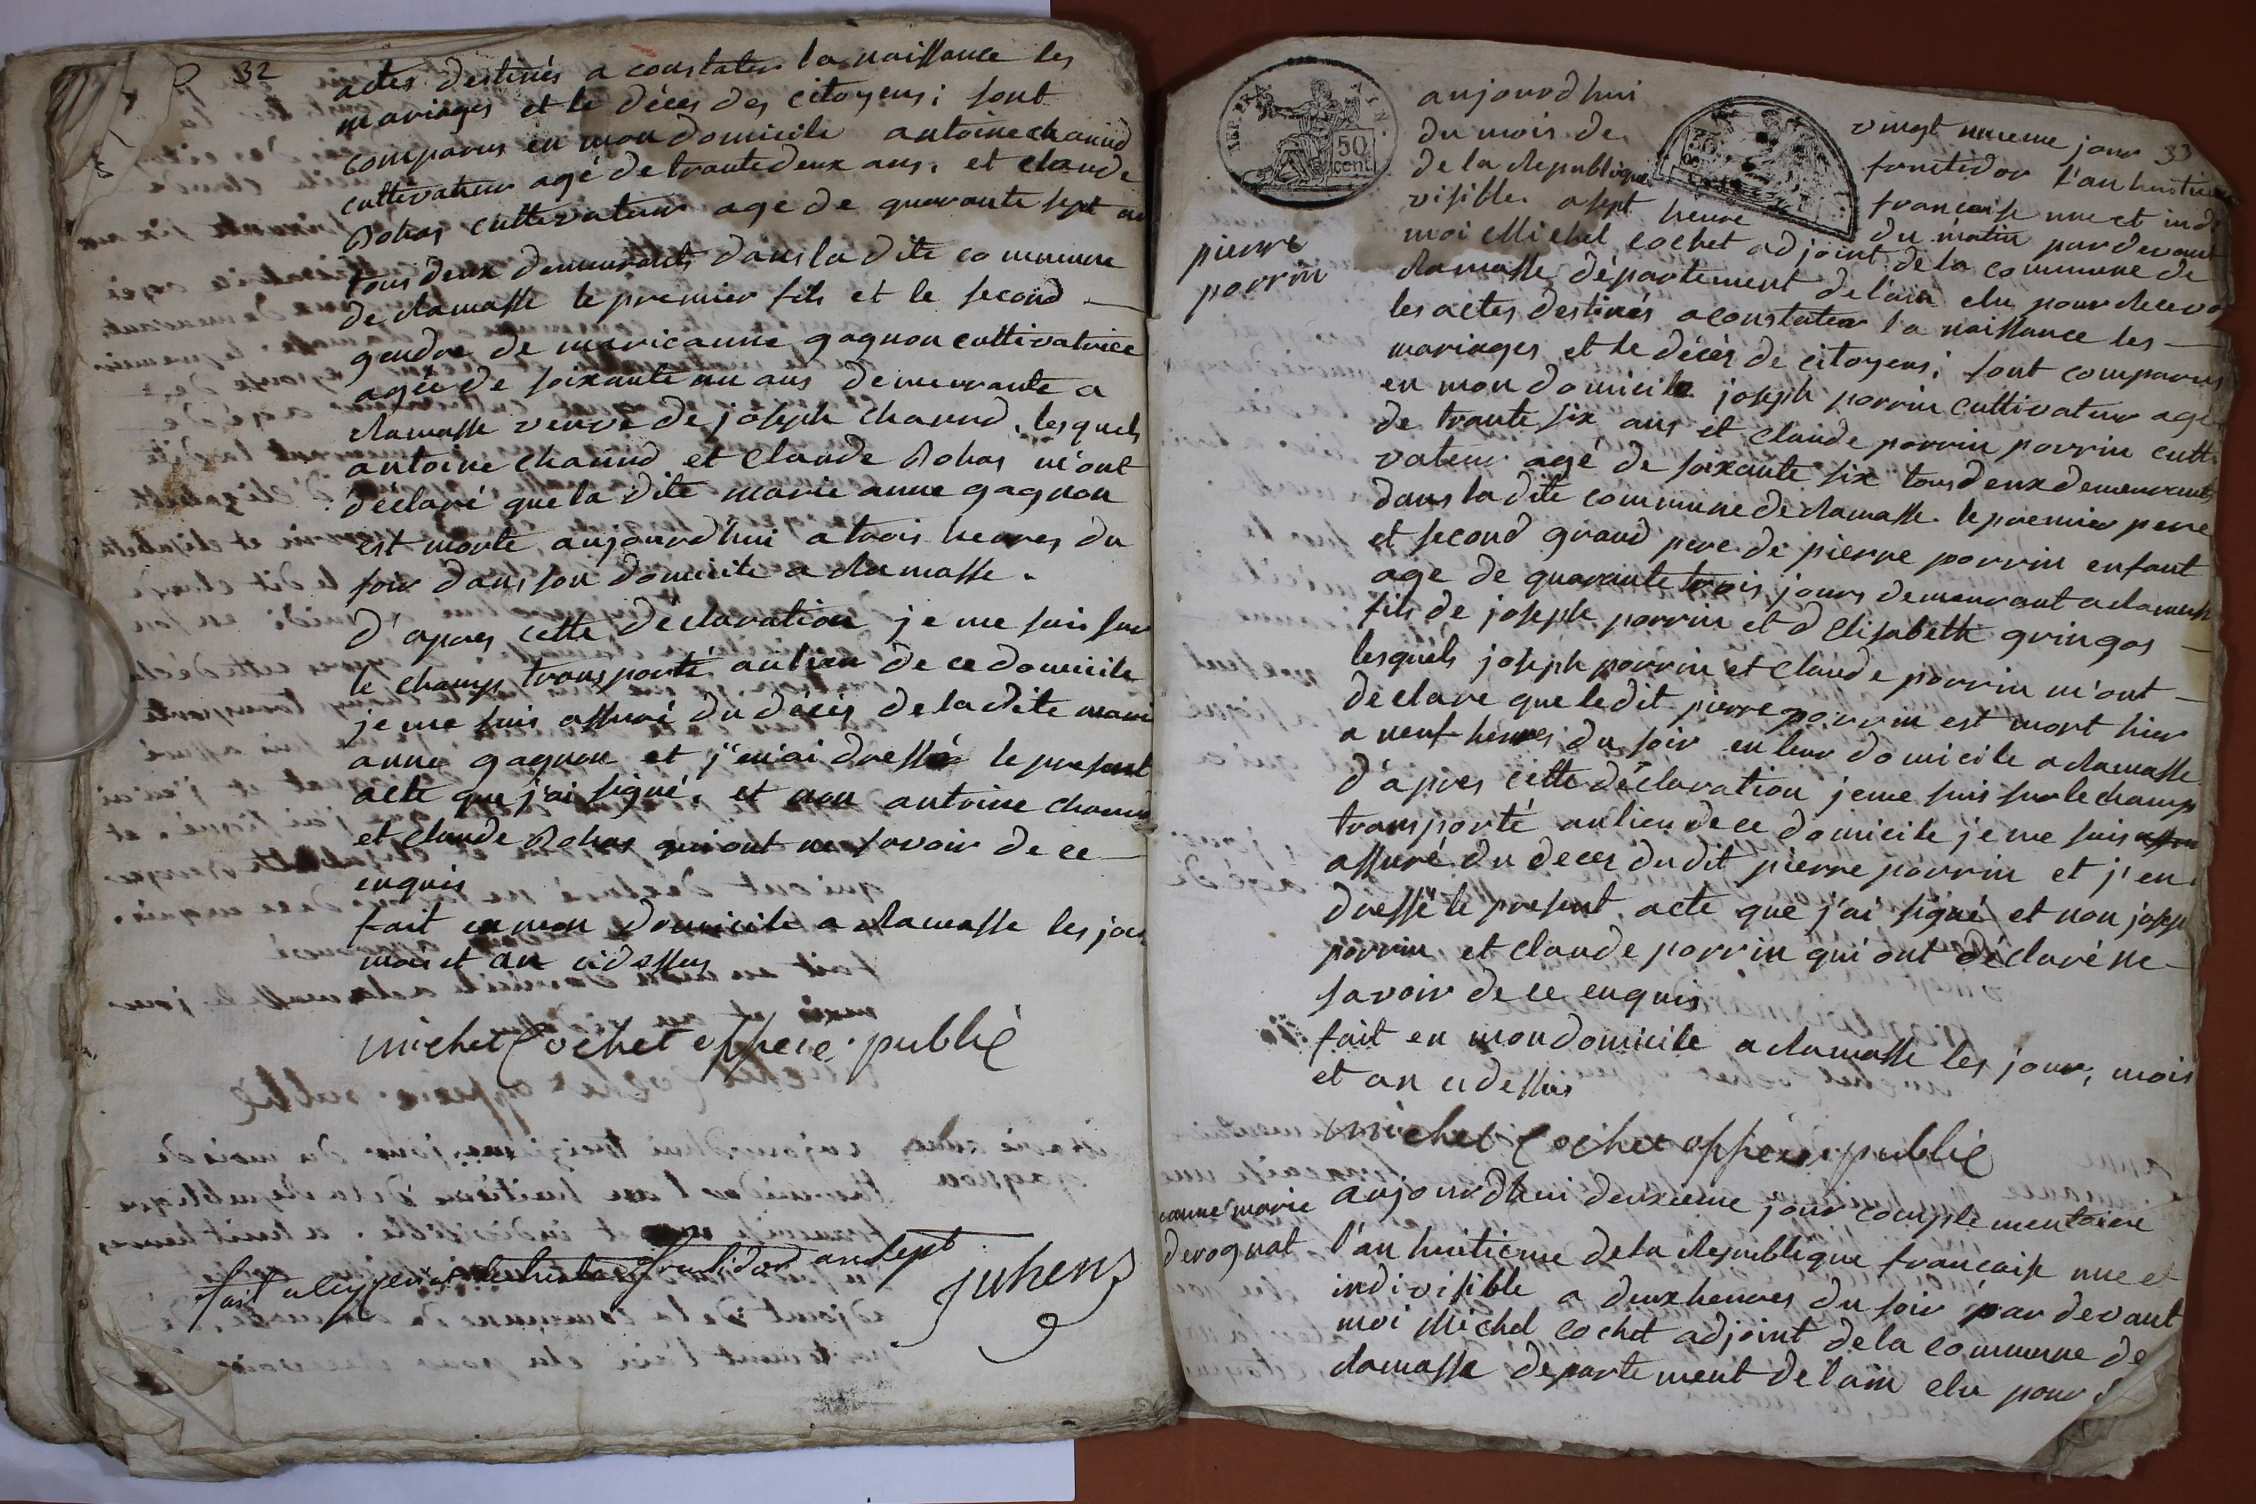 32
actes destinés a constater la naissance les
mariages et le déces des citoyens; sont
comparus en mon domicile antoine chanud
cultivateur agé de trante deux ans, et claude
Bohas cultivateur age de quarante sept an
tous deux demeurants dans la dite commune
de Ramasse le premier fils et le second
gendre de marieanne gagnon cultivatrice
agée de soixante un ans demeurante a
Ramasse veuve de joseph chanud, lesquels
antoine chanud et claude Bohas m'ont
déclaré que la dite marie anne gagnon
est morte aujourd'hui a trois heures du
soir dans son domicile a Ramasse.
d'apres cette déclaration je me suis sur
le champ transporté au lieu de ce domicile
je me suis assuré du décés de la dite marie
anne gagnon et j'en ai dressé le present
acte que j'ai signé, et non antoine chanud
et claude Bohas qui ont ne savoir de ce
enquis
fait en mon domicile a Ramasse les jour
mois et an cidessus
michel Cochet offiere public
fait a fructidor an sept
juhens
33
aujourdhui vingt uneme jour
du mois de fructidor l'an huitieme
de la Republique francaise une et indi
visible a sept heure du matin pardevant
pierre
perrin
moi Michel cochet adjoint de la commune de
Ramasse département de l'ain elu pour Recevoi
les actes destinés a constater la naissance les
mariages et le décès de citoyens; sont comparus
en mon domicile joseph perrin cultivateur agé
de trante six ans et claude perrin perrin culti
vateur agé de soixante six tous deux demeurants
dans la dite commune de Ramasse le premier pere
et second grand pere de pierre perrin enfant
age de quarante trois jours demeurant a Ramasse
fils de joseph perrin et d'Elisabeth gringos
lesquels joseph perrin et claude perrin m'ont
déclare que le dit pierre perrin est mort hier
a neuf heures du soir en leur domicile a Ramasse
d'apres cette déclaration je me suis sur le champ
transporté au lieu de ce domicile je me suis
assuré du deces du dit pierre perrin et j'en
dressé le present acte que j'ai signé et non josep
perrin et claude perrin qui ont déclaré ne
savoir de ce enquis
fait en mon domicile a Ramasse les jour, mois
et an cidessus
michel Cochet offiere public
anne marie
derognat
aujourdhui deuxieme jour complementaire
l'an huitieme de la Republique francaise une et
indivisible a deux heures du soir par devant
moi Michel cochet adjoint de la commune de
Ramasse departement de l'ain elu pour
REP. FRA.
50
cent.